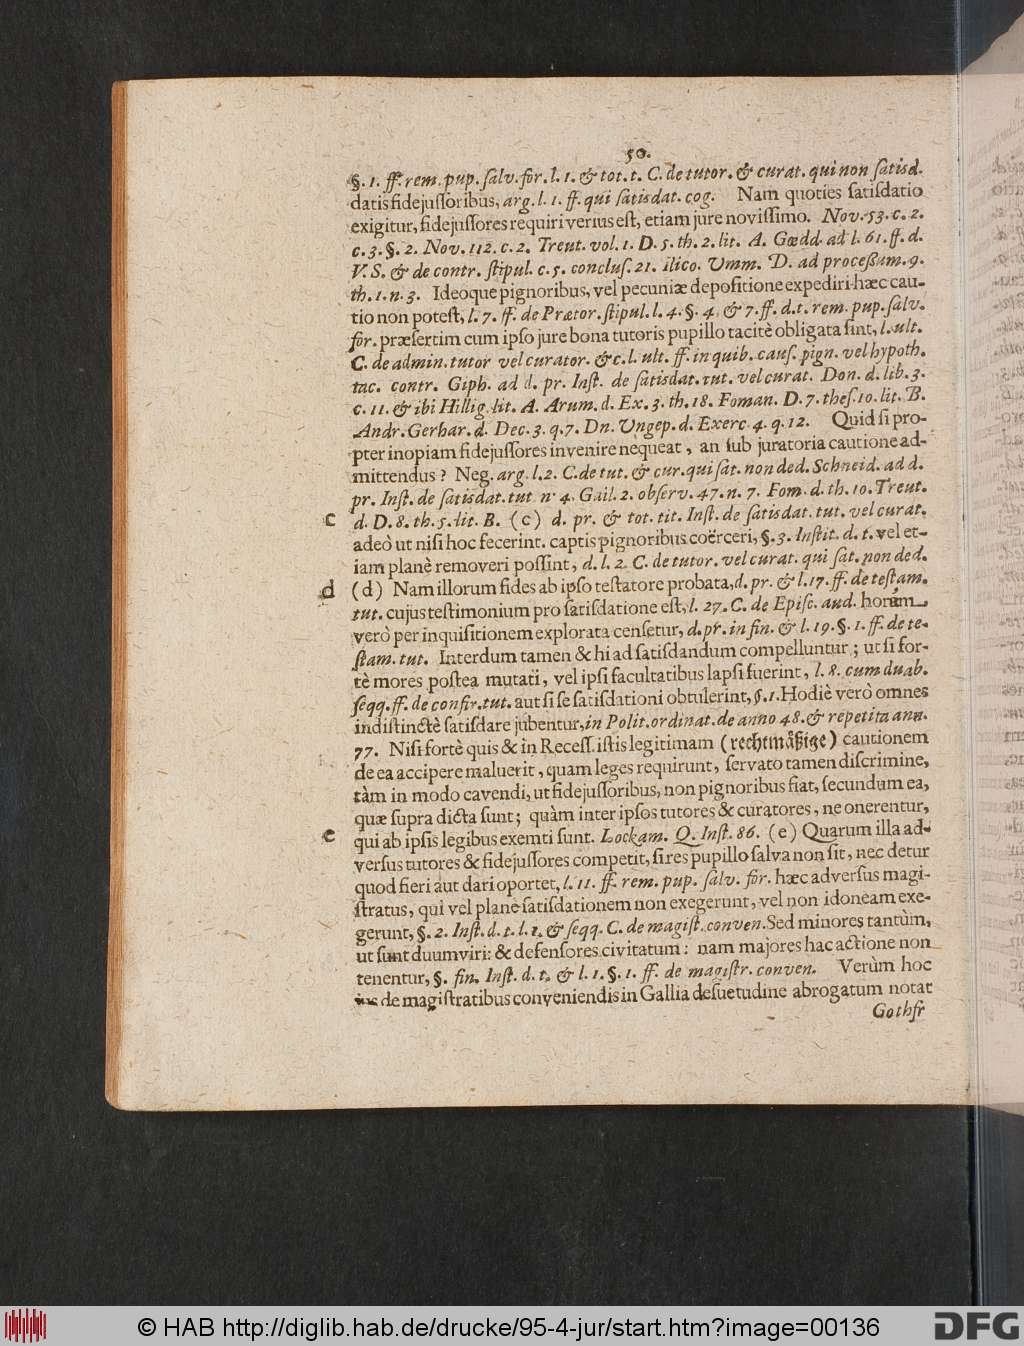 50.
§. 1. ff. rem. pup. salv. for. l. 1. & tot. t. C. de tutor. & curat. qui non satisd.
datis fidejussoribus, arg. l. 1. ff. qui satisdat. cog. Nam quoties satisdatio
exigitur, fidejussores requiri verius est, etiam jure novissimo. Nov. 53. c. 2.
c. 3. §. 2. Nov. 112. c. 2. Treut. vol. 1. D. 5. th. 2. lit. A. Gœdd. ad l. 61. ff. d.
V. S. & de contr. stipul. c. 5. conclus. 21. ilico. Umm. D. ad proceßum. 9.
th. 1. n. 3. Ideoque pignoribus, vel pecuniæ depositione expediri hæc cau-
tio non potest, l. 7. ff. de Prætor. stipul. l. 4. §. 4. & 7. ff. d. t. rem. pup. salv.
for. præsertim cum ipso jure bona tutoris pupillo tacitè obligata sint, l. ult.
C. de admin. tutor vel curator. & c. l. ult. ff. in quib. caus. pign. vel hypoth.
tac. contr. Giph. ad d. pr. Inst. de satisdat. tut. vel curat. Don. d. lib. 3.
c. 11. & ibi Hillig. lit. A. Arum. d. Ex. 3. th. 18. Foman. D. 7. thes. 10. lit. B.
Andr. Gerhar. d. Dec. 3. q. 7. Dn. Ungep. d. Exerc. 4. q. 12. Quid si pro-
pter inopiam fidejussores invenire nequeat, an sub juratoria cautione ad-
mittendus? Neg. arg. l. 2. C. de tut. & cur. qui sat. non ded. Schneid. ad d.
pr. Inst. de satisdat. tut n. 4. Gail. 2. observ. 47. n. 7. Fom. d. th. 10. Treut.
c d. D. 8. th. 5. lit. B. (c) d. pr. & tot. tit. Inst. de satisdat. tut. vel curat.
adeò ut nisi hoc fecerint. captis pignoribus coërceri, §. 3. Instit. d. t. vel et-
iam planè removeri possint, d. l. 2. C. de tutor. vel curat. qui sat. non ded.
d (d) Nam illorum fides ab ipso testatore probata, d. pr. & l. 17. ff. de testam.
tut. cujus testimonium pro satisdatione est, l. 27. C. de Episc. aud. horum
verò per inquisitionem explorata censetur, d. pr. in fin. & l. 19. §. 1. ff. de te-
stam. tut. Interdum tamen & hi ad satisdandum compelluntur; ut si for-
tè mores postea mutati, vel ipsi facultatibus lapsi fuerint, l. 8. cum duab.
seqq. ff. de confir. tut. aut si se satisdationi obtulerint, §. 1. Hodiè verò omnes
indistinctè satisdare jubentur, in Polit. ordinat. de anno 48. & repetita ann.
77. Nisi fortè quis & in Recess. istis legitimam (rechtmäßige) cautionem
de ea accipere maluerit, quam leges requirunt, servato tamen discrimine,
tàm in modo cavendi, ut fidejussoribus, non pignoribus fiat, secundum ea,
quæ supra dicta sunt; quàm inter ipsos tutores & curatores, ne onerentur,
e qui ab ipsis legibus exemti sunt. Lockam. Q. Inst. 86. (e) Quarum illa ad-
versus tutores & fidejussores competit, si res pupillo salva non sit, nec detur
quod fieri aut dari oportet, l. 11. ff. rem. pup. salv. for. hæc adversus magi-
stratus, qui vel planè satisdationem non exegerunt, vel non idoneam exe-
gerunt, §. 2. Inst. d. t. l. 1. & seqq. C. de magist. conven. Sed minores tantùm,
ut sunt duumviri: & defensores civitatum: nam majores hac actione non
tenentur, §. fin. Inst. d. t. & l. 1. §. 1. ff. de magistr. conven. Verùm hoc
jus de magistratibus conveniendis in Gallia desuetudine abrogatum notat
Gothfr
© HAB http://diglib.hab.de/drucke/95-4-jur/start.htm?image=00136
DFG